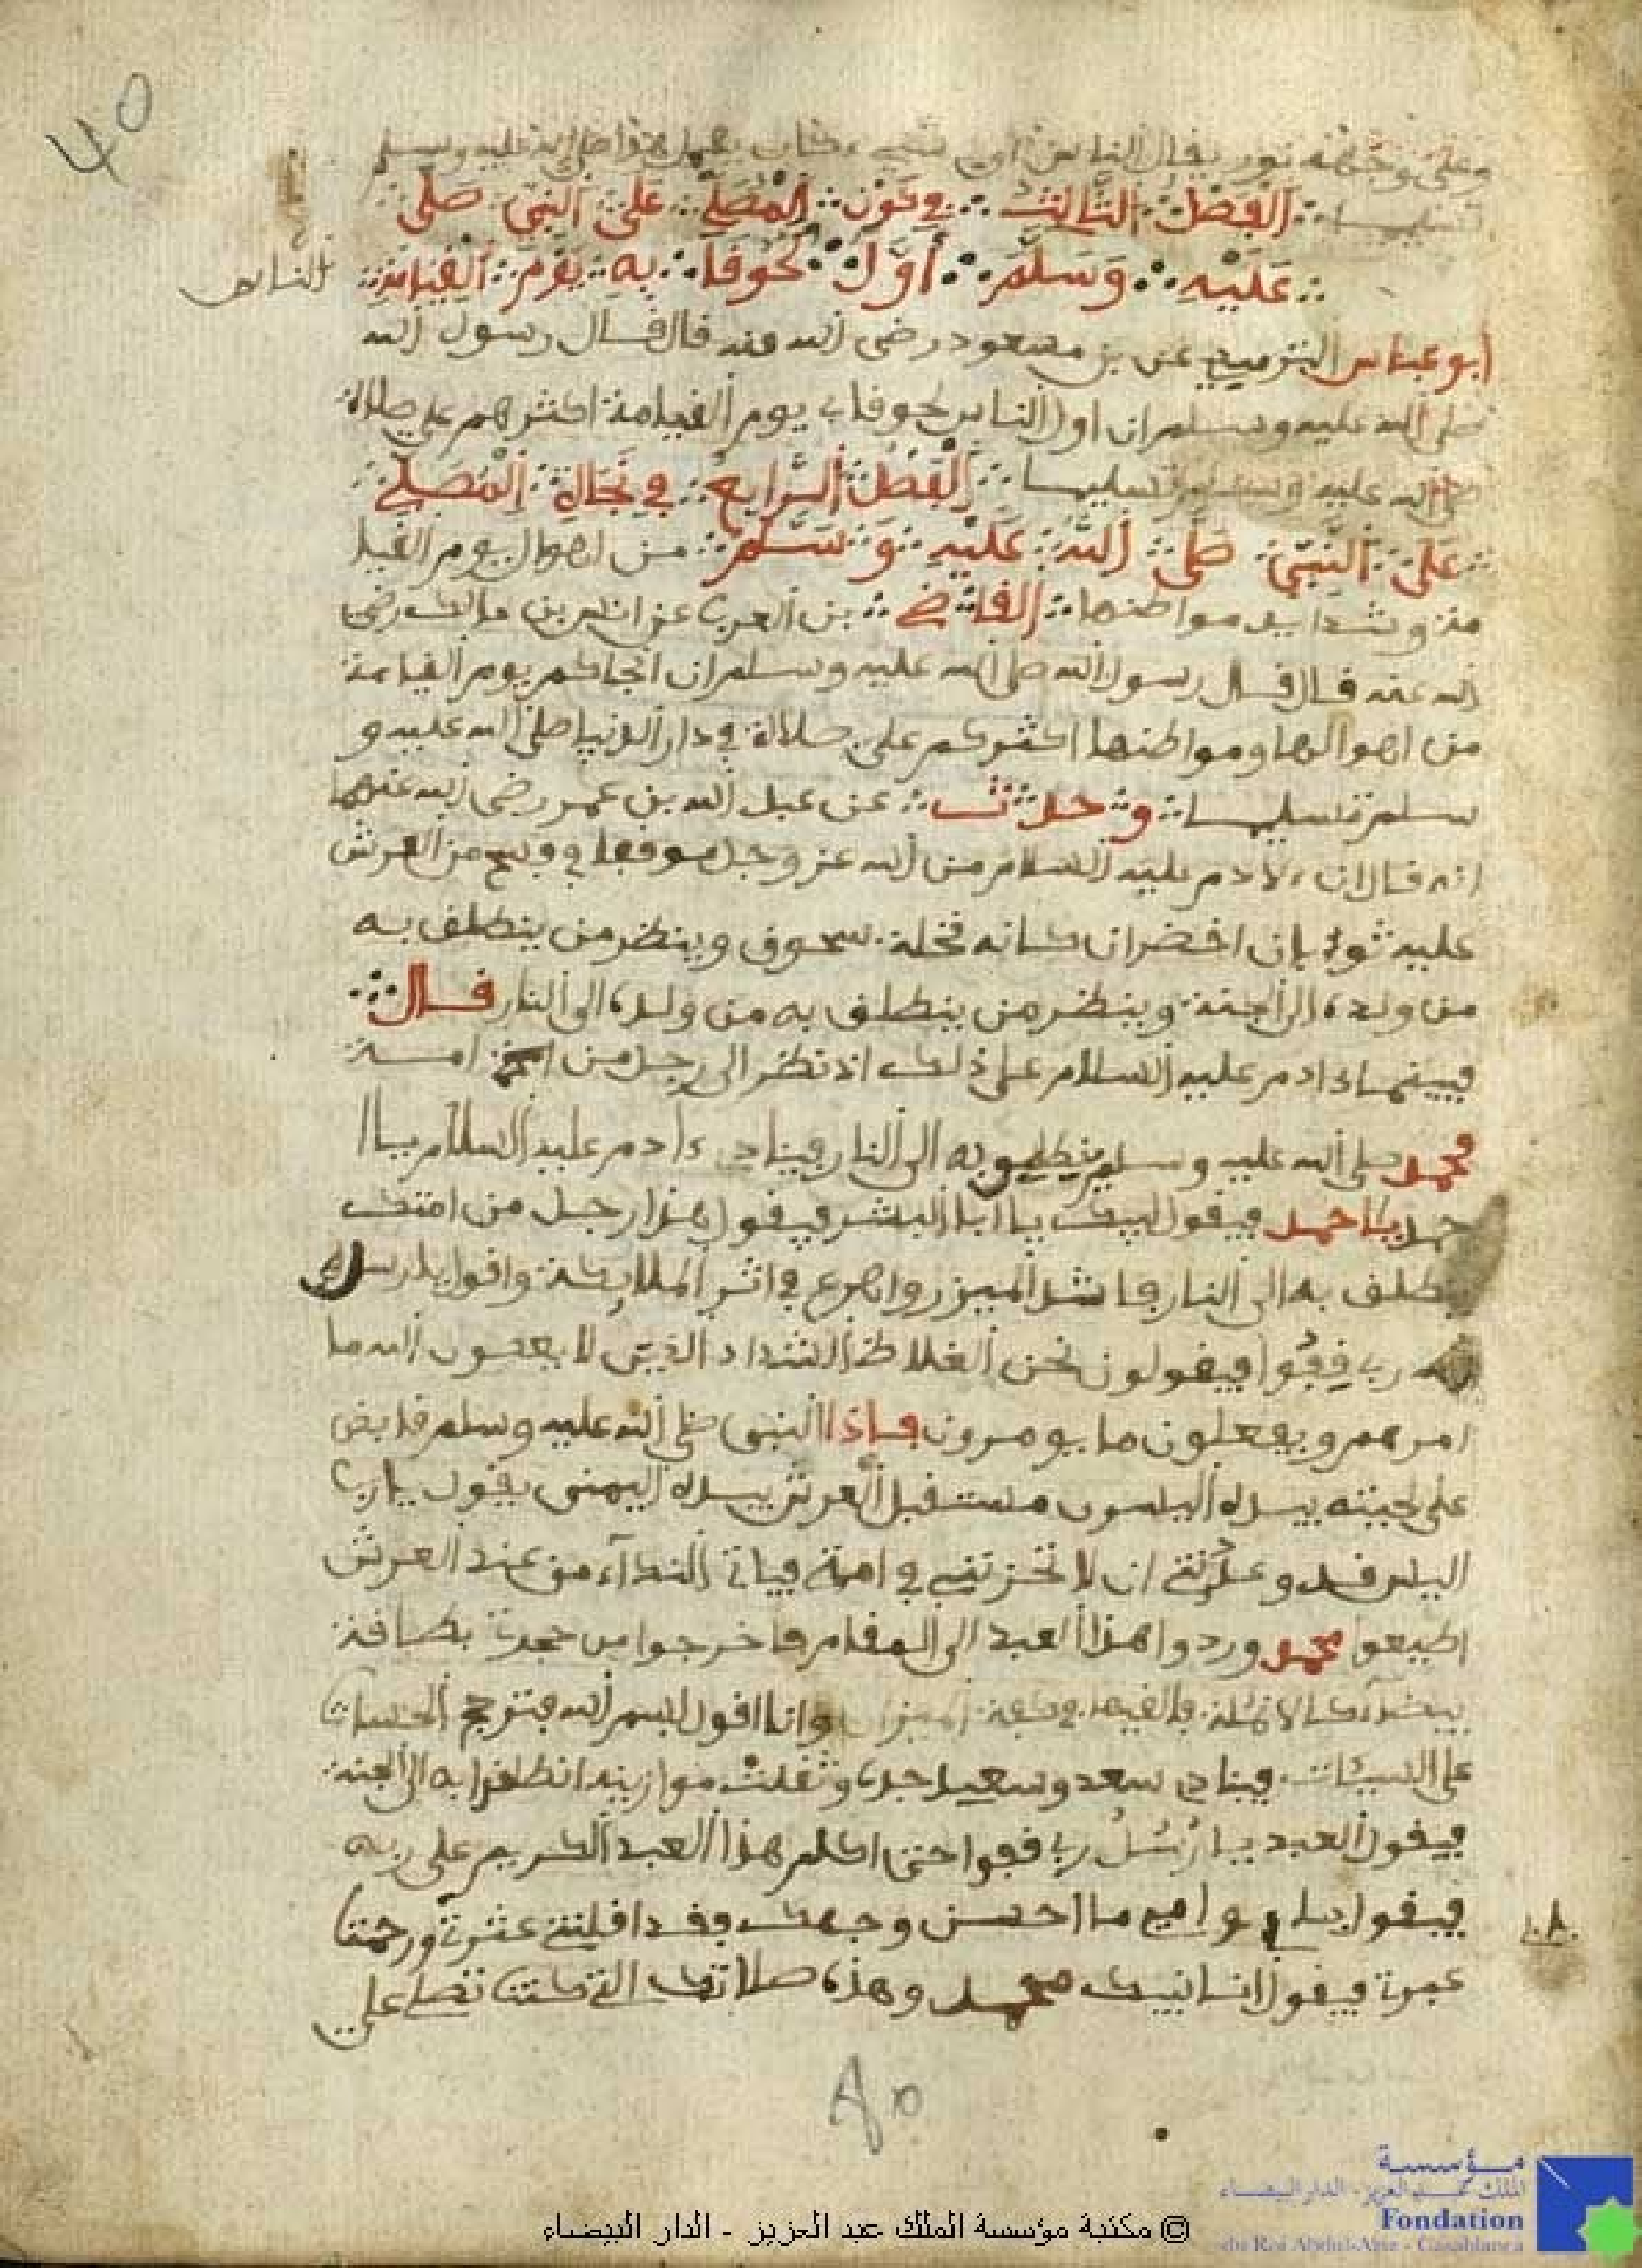 40
وعلى وجهه نور يقال الناس اي شيء كان يعمل هذا صلى الله عليه وسلم
تسليما الفصل الثالث في كون المصلي على النبي صلى
عليه وسلم أول لحوقا به يوم القيامة
الناس
ابو عباس الترميدي عن بن مسعود رضي الله عنه قال قال رسول الله
صلى الله عليه وسلم ان اول الناس لحوقا بي يوم القيامة اكثرهم علي صلاة
صلى الله عليه وسلم تسليما الفصل الرابع في نجاة المصلي
على النبي صلى الله عليه وسلم من اهوال يوم القيا
مة وشدايد مواطنها القاضي بن العربي عن انس بن مالك رضي
الله عنه قال قال رسول الله صلى الله عليه وسلم ان انجاكم يوم القيامة
من اهوالها ومواطنها اكثركم علي صلاة في دار الدنيا صلى الله عليه و
سلم تسليما وحدث عن عبد الله بن عمر رضي الله عنهما
انه قال ان ءلادم عليه السلام من الله عز وجل موقفا في وسع من العرش
عليه ثوبان اخضران كانه نخلة سحوق وينظر من ينطلق به
من ولده الى الجنة وينظر من ينطلق به من ولده الى النار قال
فبينماءادم عليه السلام على ذلك اذ نظر الى رجل من امة
محمد صلى الله عليه وسلم ينطلق به الى النار فينادي ءادم عليه السلام يا ا
حمد يا احمد فيقول لبيك يا ابا البشر فيقول هذا رجل من امتك
ينطلق به الى النار فاشد الميزر واهرع في اثر الملايكة واقول يا رسل
رب قفوا فيقولون نحن الغلاظ الشداد الذين لا يعصون الله ما
امرهم ويفعلون ما يومرون فاذا النبي صلى الله عليه وسلم قابض
على لحيته بيده مستقبل العرش بيده اليمنى يقول يا رب
اليس قد وعدتني ان لا تخزني في امتي فياتي النداء من عند العرش
اطيعوا محمد وردوا هذا العبد الى المقام فاخرجوا من بطاقة
بيضآء كالانملة فالقيها في كفة الميزان وانا اقول بسم الله فترجح الحسنات
على السيئات فينادي سعد وسعيد جده وثقلت موازينه انطلقوا به الى الجنة
فيقول العبد يا رُسُلُ رب قفوا حتى اكلم هذا العبد الكريم على ربه
فيقول بابي وامي ما احسن وجهك فقد اقلتني عثرتي ورحمت
عبرتي فيقول انا نبيك محمد وهذه صلاتك التي كنت تصلي علي
مؤسسة
الملك عبد العزيز - الدار البيضاء
Fondation
du Roi Abdul-Aziz - Casablanca
© مكتبة مؤسسة الملك عبد العزيز - الدار البيضاء